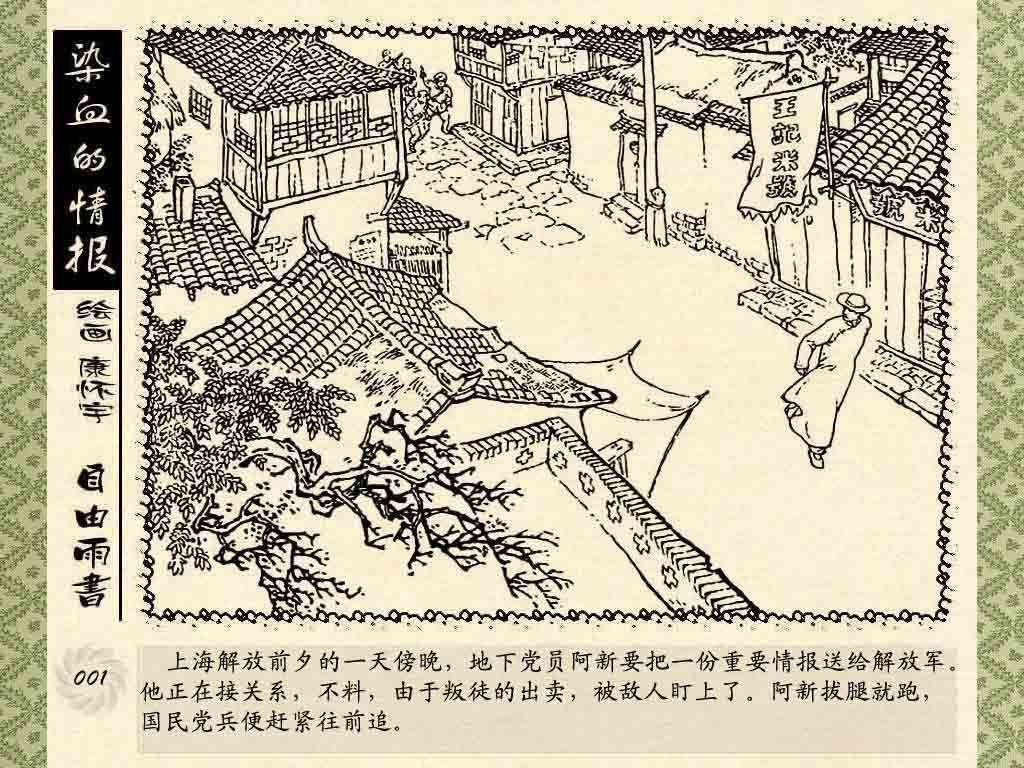 染血的情报
绘画 康怀宇
自由雨書
王記米號
米號
001
上海解放前夕的一天傍晚，地下党员阿新要把一份重要情报送给解放军。
他正在接关系，不料，由于叛徒的出卖，被敌人盯上了。阿新拔腿就跑，
国民党兵便赶紧往前追。